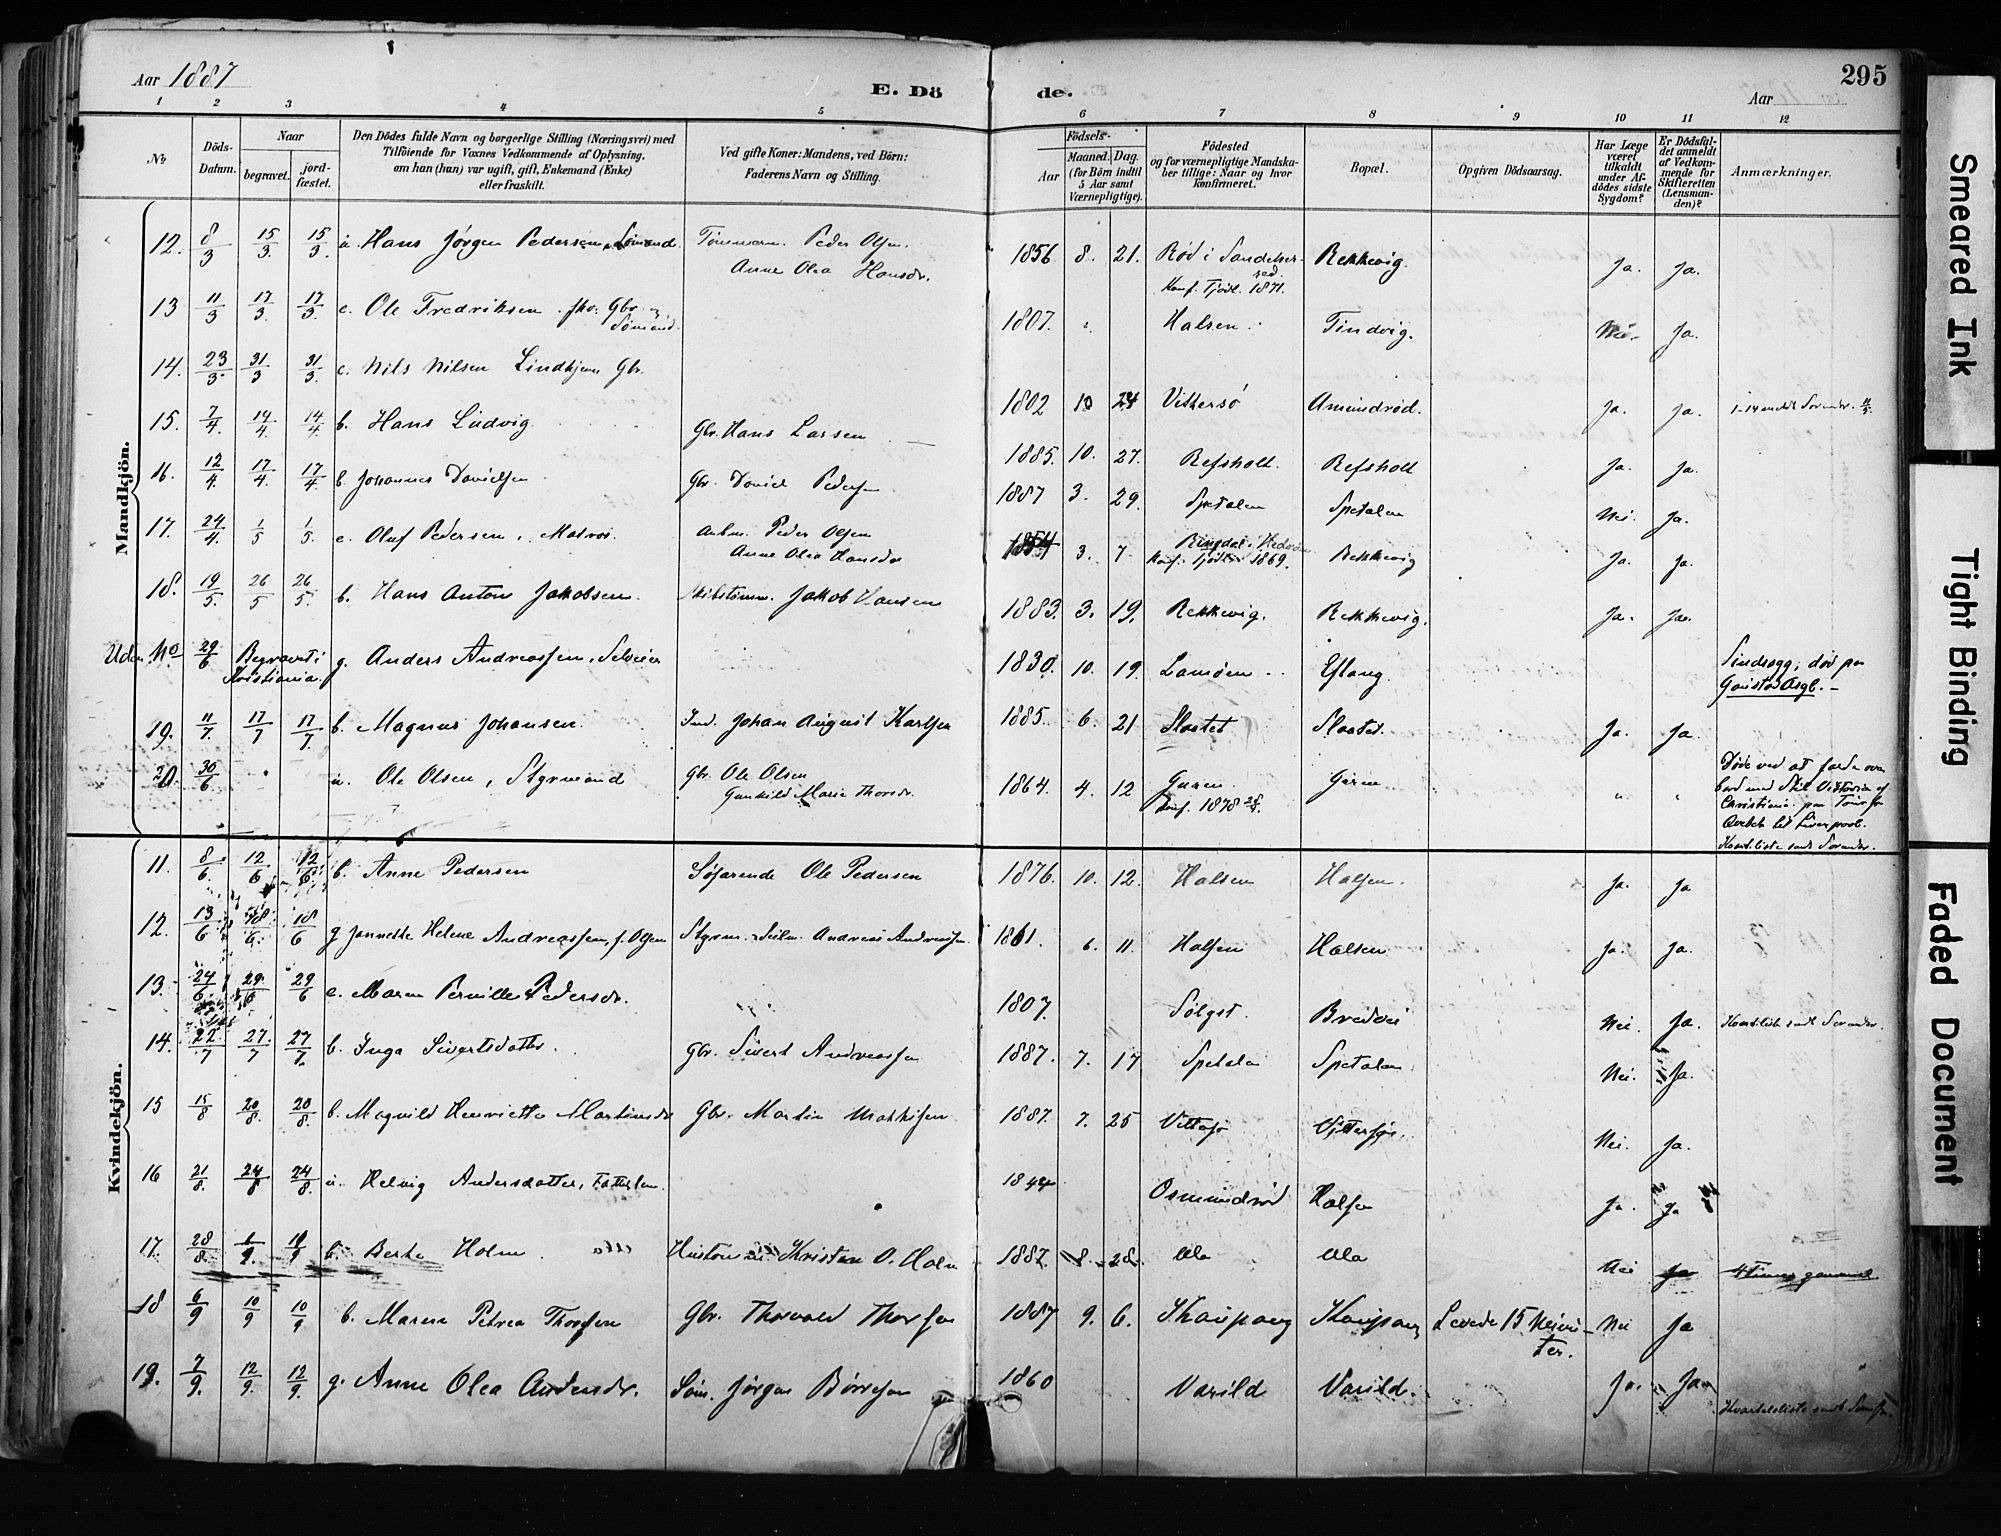 Aar 1887
E. Dö
de.
Aar
295
1 2 3 4 5 6 7 8 9 10 11 12
No
Döds-Datum.
Naar
begravet.
jordfæstet.
Den Dödes fulde Navn og borgerlige Stilling (Næringsvei) med
Tilföiende for Voxnes Vedkommende af Oplysning,
om han (hun) var ugift, gift, Enkemand (Enke)
eller fraskilt.
Ved gifte Koner: Mandens, ved Börn:
Faderens Navn og Stilling.
Födsels-
Aar
Maaned. Dag.
(for Börn indtil
5 Aar samt
Værnepligtige).
Födested
og for værnepligtige Mandska-
ber tillige: Naar og hvor
konfirmeret.
Bopæl.
Opgiven Dödsaarsag.
Har Læge
været
tilkaldt
under Af-
dödes sidste
Sygdom?
Er Dödsfal-
det anmeldt
af Vedkom-
mende for
Skifteretten
(Lensman-
den)?
Anmærkninger.
Mandkjön.
12. 8/3 15/3. 15/3. u. Hans Jørgen Pedersen, Sømand. Tømmerm. Peder Olsen. 1856 8. 21. Rød i Sandeher- Rekkevig. Ja. Ja.
Anne Olea Hansdr. red.
Konf. Tjødl. 1871.
13 11/3 17/3. 17/3. e. Ole Fredriksen. fhv. Gbr. 1807. Halsen. Tindvig. Nei. Ja.
Sømand.
14. 23/3. 31/3 31/3. e. Nils Nilsen Lindhjem Gbr. 1802 10 24 Vittersø Amundrød. Ja. Ja.
15. 7/4. 14/4. 14/4 b. Hans Ludvig. Gbr. Hans Larsen 1885. 10. 27. Refsholt. Refsholt Ja. Ja.
16. 12/4. 17/4. 17/4. b. Johannes Davidsen Gbr. David Pedersen 1887 3. 29. Spetalen Spetalen Nei. Ja.
17. 24/4. 1/5 1/5. e. Oluf Pedersen, Matros. Arbm. Peder Olsen 1854 3. 7. Ringdal i Hedrum Rekkevig Ja. Ja.
Anne Olea Hansdr Konf. Tjødl. 1869.
18. 19/5. 26/5 26/5. b. Hans Anton Jakobsen. Skibstømm. Jakob Hansen 1883. 3. 19. Rekkevig. Rekkevig. Ja. Ja.
Uden No 29/6 Begravet i g. Anders Andreassen, Selveier 1830. 10. 19. Lamøen Eftang. Sindssyg; død paa
Kristiania. Gaustad Asyl. –
19. 11/7. 17/7 17/7. b. Magnus Johansen. Ind. Johan August Karlsen 1885. 6. 21 Slaatet Slaatet. Ja. Ja.
20. 30/6 u. Ole Olsen, Styrmand Gbr. Ole Olsen 1864. 4. 12 Guren. Guren " "
Gunhild Marie Thorsdr. Konf. 1878
Døde ved at falde over
bord med Skib Viktoria af
Christiania paa Tour fra
Qvebek til Liverpool.
Kvindekjön.
11. 8/6 12/6 12/6. b. Anne Pedersen Søfarende Ole Pedersen 1876. 10. 12. Halsen Halsen. Ja. Ja
12. 13/6 18/6. 18/6 g Jannette Helene Andreassen, f. Olsen Styrm. Andreas Andreassen 1861. 6. 11. Halsen Halsen Ja. Ja.
13. 24/6. 29/6 29/6 e. Maren Pernille Pedersdr. 1807. Sølyst. Bredvei Nei. Ja.
14. 22/7 27./7 27/7. b. Inga Sivertsdatter. Gbr. Sivert Andreassen 1887. 7. 17 Spetalen Spetalen Nei. Ja.
15 15/8 20/8. 20/8. b. Magnild Henriette Martinsdr Gbr. Martin Mathisen 1887. 7. 25 Vittersø Vittersø. Nei. Ja.
16 21/8. 24/8 24/8. u. Helvig Andersdatter, Fattiglem. 1844 Osmundrød Halsen Ja. Ja
17. 28/8. b. Berte Holm. Kristian O. Holm 1887. 8. 28. Ula Ula Nei Ja 4 Timer gammel
18 6/9 10/9 10/9 b. Maren Petrea Thorsen Gbr. Thorvald Thorsen 1887 9. 6. Kaupang Kaupang Levede 15 Minu- Nei Ja
ter.
19. 7/9. 12/9. 12/9. g. Anne Olea Andersdr. Søm. Jørgen Børresen 1860 Varild Varild. Ja. Ja.
Smeared Ink
Tight Binding
Faded Document